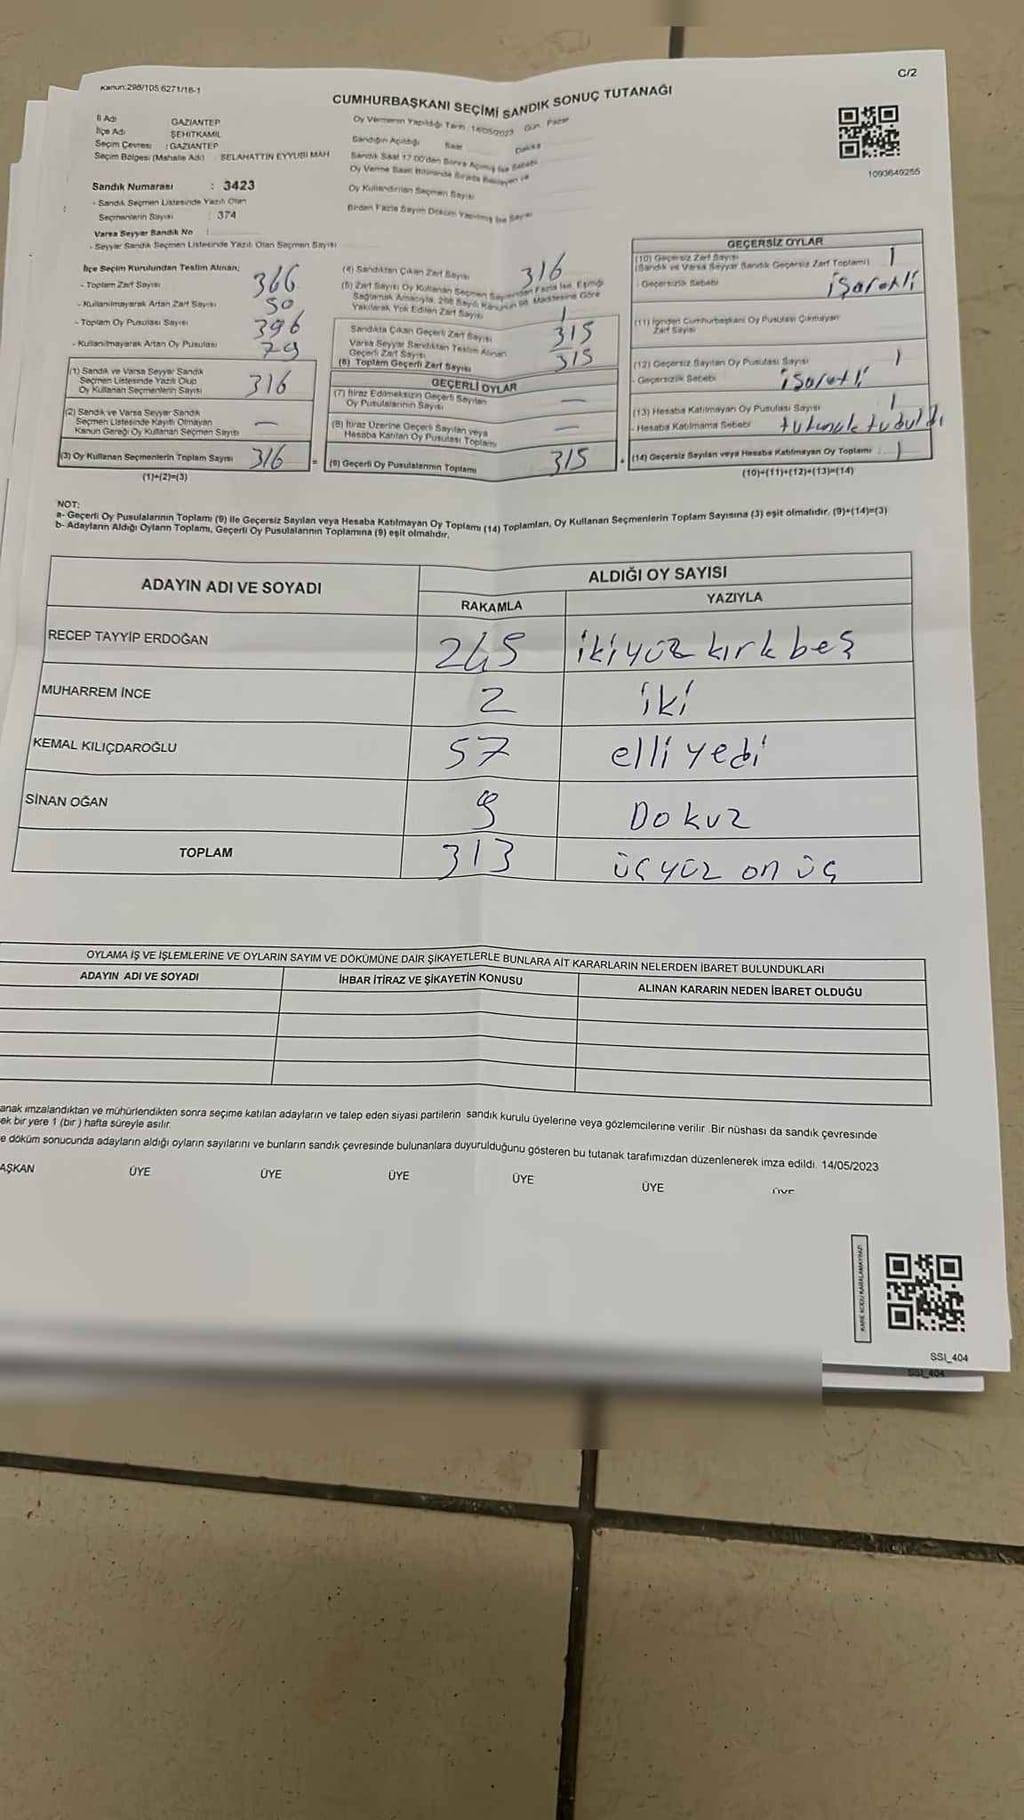 Kanun:298/105 6271/16-1
C/2
CUMHURBAŞKANI SEÇİMİ SANDIK SONUÇ TUTANAĞI
İl Adı GAZİANTEP
İlçe Adı ŞEHİTKAMİL
Seçim Çevresi : GAZİANTEP
Seçim Bölgesi (Mahalle Adı) : SELAHATTİN EYYUBİ MAH
Sandık Numarası : 3423
- Sandık Seçmen Listesinde Yazılı Olan
Seçmenlerin Sayısı : 374
Varsa Seyyar Sandık No :
- Seyyar Sandık Seçmen Listesinde Yazılı Olan Seçmen Sayısı
Oy Vermenin Yapıldığı Tarih : 14/05/2023 Gün: Pazar
Sandığın Açıldığı Saat Dakika
Sandık Saat 17.00'den Sonra Açılmış İse Sebebi
Oy Verme Saati Bitiminde Sırada Bekleyen ve
Oy Kullandırılan Seçmen Sayısı
Birden Fazla Sayım Döküm Yapılmış İse Sayısı
1093649255
İlçe Seçim Kurulundan Teslim Alınan;
- Toplam Zarf Sayısı 366
- Kullanılmayarak Artan Zarf Sayısı 50
- Toplam Oy Pusulası Sayısı 396
- Kullanılmayarak Artan Oy Pusulası 79
(1) Sandık ve Varsa Seyyar Sandık
Seçmen Listesinde Yazılı Olup
Oy Kullanan Seçmenlerin Sayısı 316
(2) Sandık ve Varsa Seyyar Sandık
Seçmen Listesinde Kayıtlı Olmayan
Kanun Gereği Oy Kullanan Seçmen Sayısı —
(3) Oy Kullanan Seçmenlerin Toplam Sayısı 316
(1)+(2)=(3)
(4) Sandıktan Çıkan Zarf Sayısı 316
(5) Zarf Sayısı Oy Kullanan Seçmen Sayısından Fazla İse, Eşitliği
Sağlamak Amacıyla, 298 Sayılı Kanunun 98. Maddesine Göre
Yakılarak Yok Edilen Zarf Sayısı 1
Sandıkta Çıkan Geçerli Zarf Sayısı 315
Varsa Seyyar Sandıktan Teslim Alınan
Geçerli Zarf Sayısı
(6) Toplam Geçerli Zarf Sayısı 315
GEÇERLİ OYLAR
(7) İtiraz Edilmeksizin Geçerli Sayılan
Oy Pusulalarının Sayısı —
(8) İtiraz Üzerine Geçerli Sayılan veya
Hesaba Katılan Oy Pusulası Toplamı —
(9) Geçerli Oy Pusulalarının Toplamı 315
GEÇERSİZ OYLAR
(10) Geçersiz Zarf Sayısı
(Sandık ve Varsa Seyyar Sandık Geçersiz Zarf Toplamı) 1
- Geçersizlik Sebebi işaretli
(11) İçinden Cumhurbaşkanı Oy Pusulası Çıkmayan
Zarf Sayısı
(12) Geçersiz Sayılan Oy Pusulası Sayısı 1
- Geçersizlik Sebebi işaretli
(13) Hesaba Katılmayan Oy Pusulası Sayısı 1
- Hesaba Katılmama Sebebi
(14) Geçersiz Sayılan veya Hesaba Katılmayan Oy Toplamı : 1
(10)+(11)+(12)+(13)=(14)
NOT:
a- Geçerli Oy Pusulalarının Toplamı (9) ile Geçersiz Sayılan veya Hesaba Katılmayan Oy Toplamı (14) Toplamları, Oy Kullanan Seçmenlerin Toplam Sayısına (3) eşit olmalıdır. (9)+(14)=(3)
b- Adayların Aldığı Oyların Toplamı, Geçerli Oy Pusulalarının Toplamına (9) eşit olmalıdır.
ADAYIN ADI VE SOYADI
ALDIĞI OY SAYISI
RAKAMLA YAZIYLA
RECEP TAYYİP ERDOĞAN 245 ikiyüz kırk beş
MUHARREM İNCE 2 iki
KEMAL KILIÇDAROĞLU 57 elli yedi
SİNAN OĞAN 9 Dokuz
TOPLAM 313 üçyüz on üç
OYLAMA İŞ VE İŞLEMLERİNE VE OYLARIN SAYIM VE DÖKÜMÜNE DAİR ŞİKAYETLERLE BUNLARA AİT KARARLARIN NELERDEN İBARET BULUNDUKLARI
ADAYIN ADI VE SOYADI İHBAR İTİRAZ VE ŞİKAYETİN KONUSU ALINAN KARARIN NEDEN İBARET OLDUĞU
anak imzalandıktan ve mühürlendikten sonra seçime katılan adayların ve talep eden siyasi partilerin sandık kurulu üyelerine veya gözlemcilerine verilir. Bir nüshası da sandık çevresinde
ek bir yere 1 (bir) hafta süreyle asılır.
e döküm sonucunda adayların aldığı oyların sayılarını ve bunların sandık çevresinde bulunanlara duyurulduğunu gösteren bu tutanak tarafımızdan düzenlenerek imza edildi. 14/05/2023
AŞKAN ÜYE ÜYE ÜYE ÜYE ÜYE ÜYE
KARE KODU KARALAMAYINIZ!
SSI_404
SSI_404